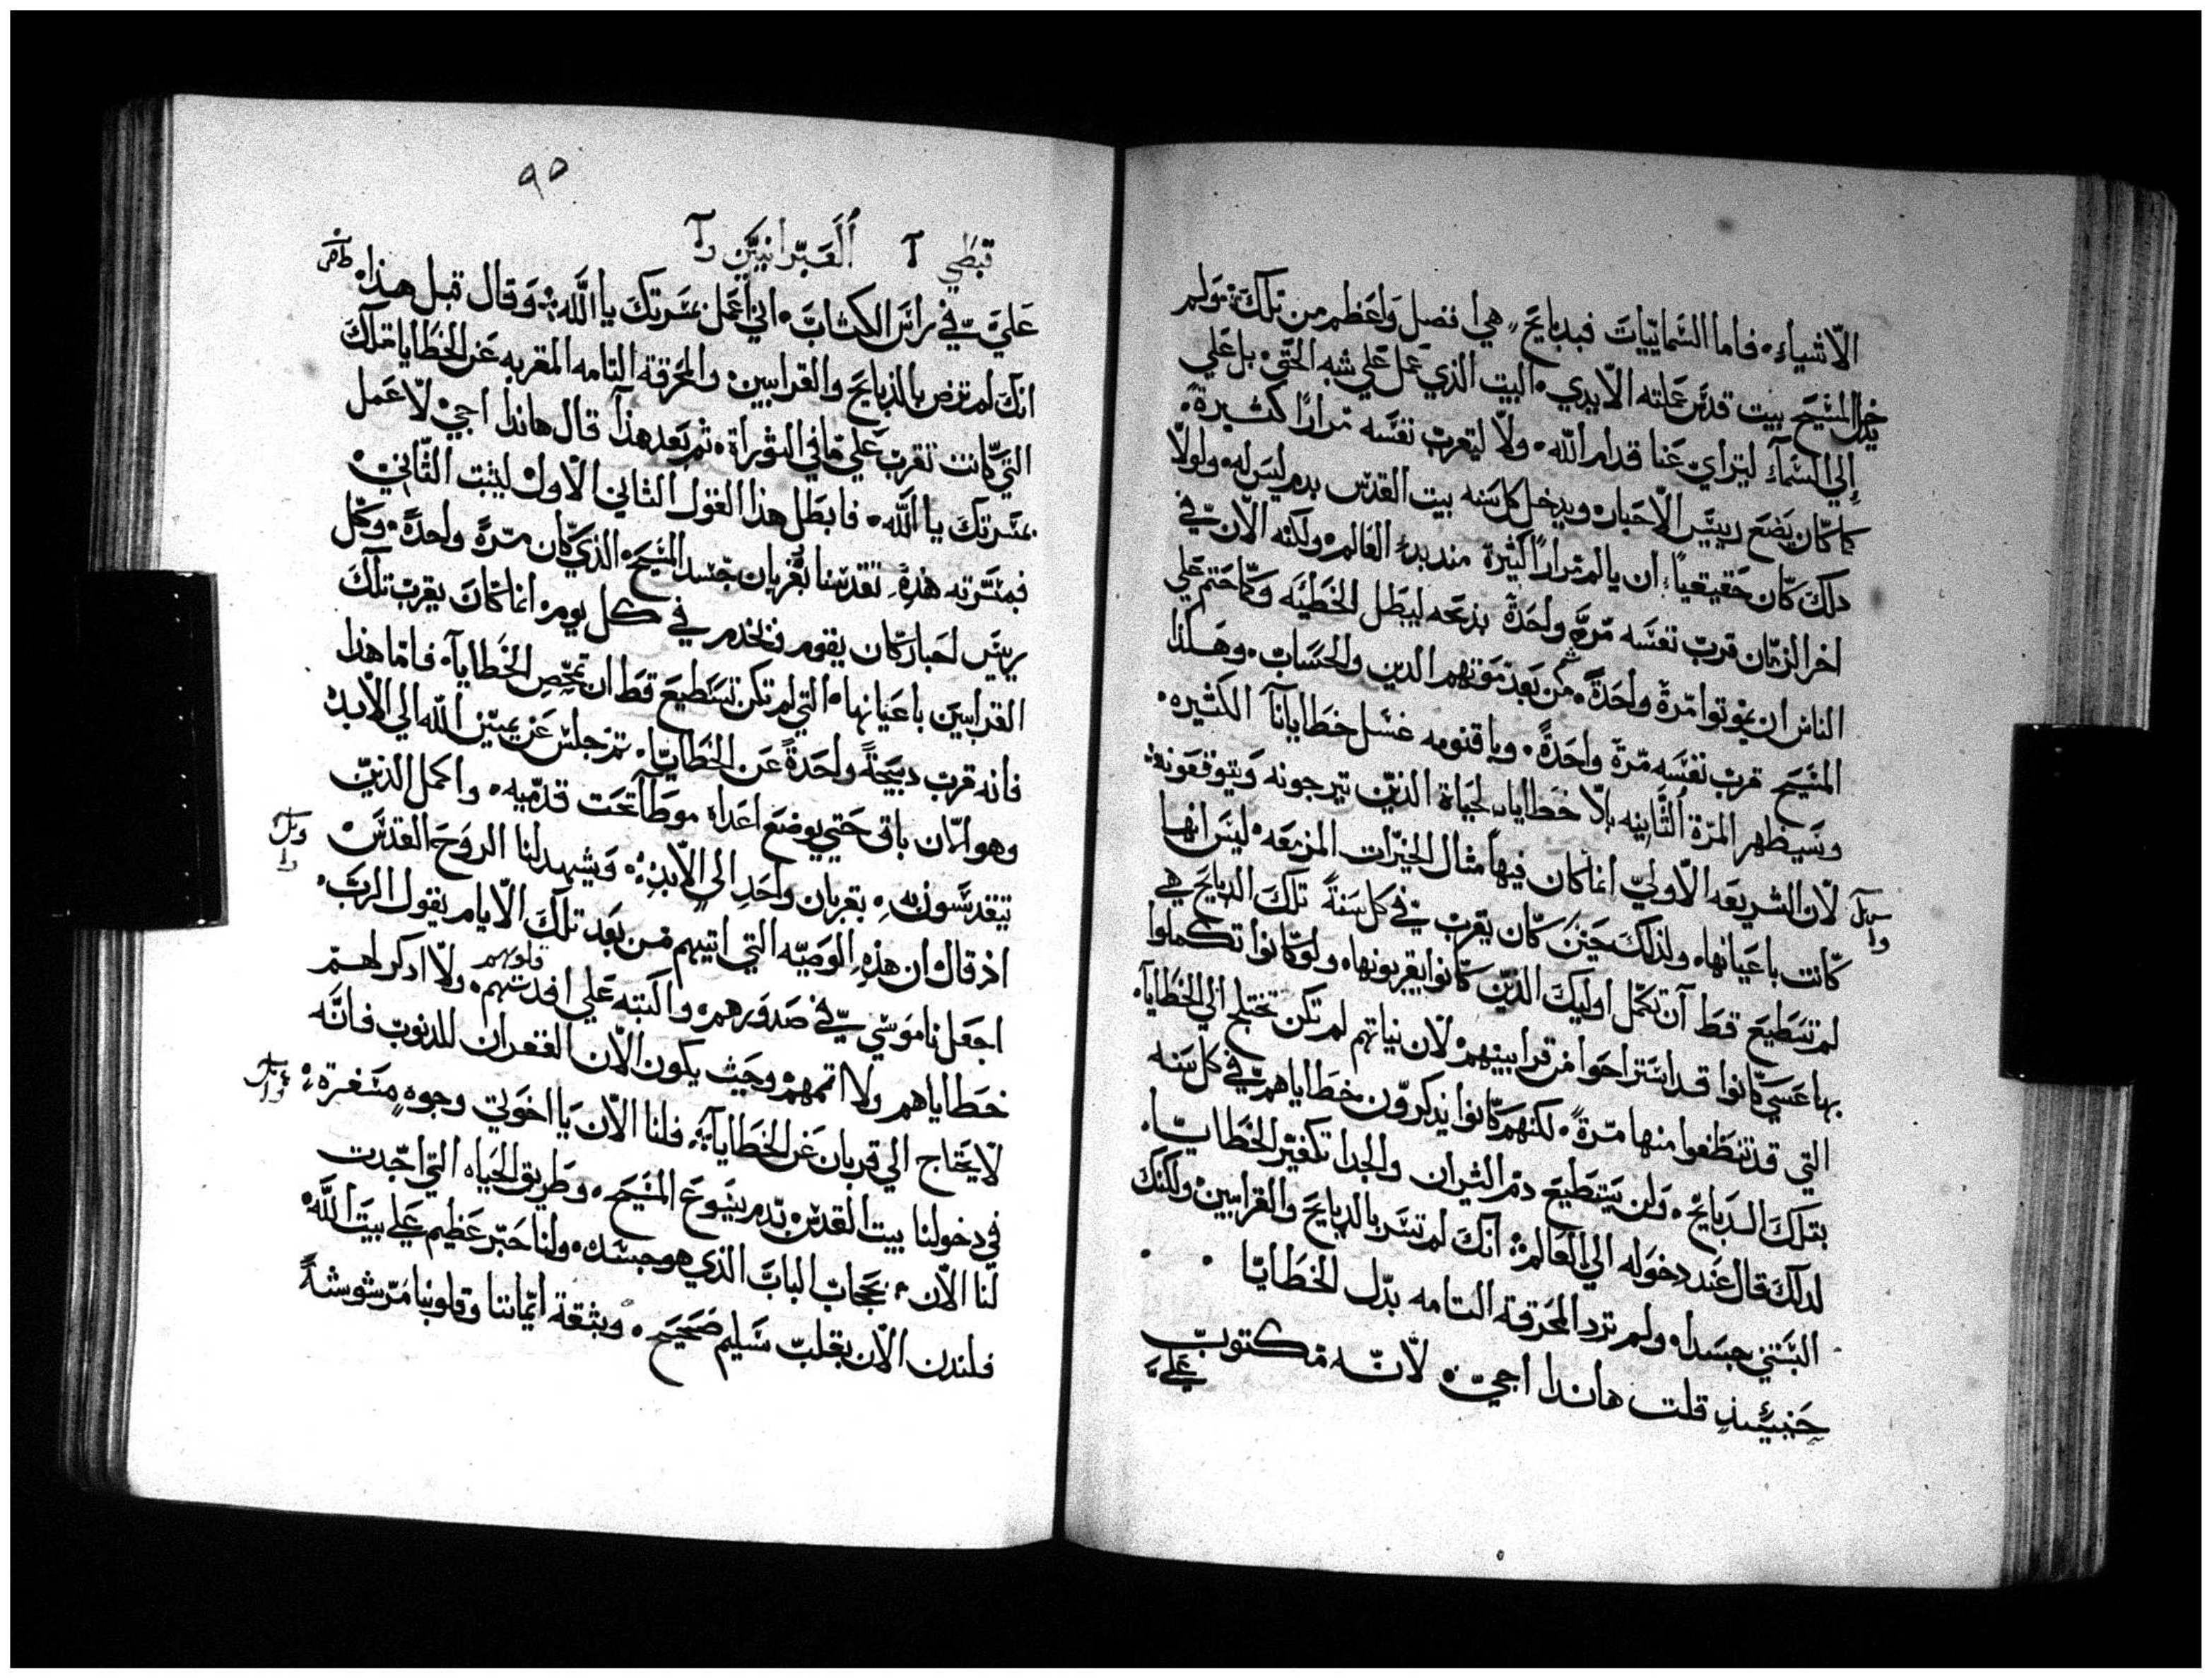 الاشياء. فاما السمائيات فبدبايح هي افضل واعظم من تلك ولم
يدخل المسيح بيت قدس عملته الايدي. البيت الذي عمل علي شبه الحق. بل علي
الي السماء ليتراي عنا قدام الله. ولا ليقرب نفسه مرارا كثيرة.
كما كان يصنع رييس الاحبار. ويدخل كل سنه بيت القدس بدم ليس له. ولولا
دلك كان حقيقيا. ان يالم مرارا كثيرة مند بدء العالم. ولكنه الان في
اخر الزمان قرب نفسه مرة واحدة بذبحه ليبطل الخطيه وكما حتم علي
الناس ان يموتوا مرة واحدة. ثم من بعد موتهم الدين والحساب. وهكذا
المسيح قرب نفسه مرة واحدة. وباقنومه غسل خطايانا الكثيره.
وسيظهر المرة الثانيه بلا خطايا. لحياة الذين يرجونه ويتوقعونه
لان الشريعه الاولي انما كان فيها مثال الخيرات المزمعه. ليس انها
كانت باعيانها. ولذلك حين كان يقرب في كل سنة تلك الدبايح هي
لم تستطيع قط ان تكمل اوليك الذين كانوا يقربونها. ولو كانوا تكملوا
بها عسي كانوا قد استراحوا من قرابينهم. لان نياتهم لم تكن تختلج الي الخطايا.
التي قد تنظفوا منها مرة. لكنهم كانوا يذكرون خطاياهم في كل سنه
بتلك الدبايح. ولن يستطيع دم الثيران والجدا تكفير الخطايا.
لدلك قال عند دخوله الي العالم. انك لم تسر بالدبايح والقرابين. ولكنك
البستني جسدا. ولم ترد المحرقة التامه بدل الخطايا
حينيئذ قلت هاندا اجي. لانه مكتوب
علي
٩٥
قبطي العبرانيين
علي في راس الكتاب. اني اعمل بمسرتك يا الله. وقال قبل هذا.
انك لم ترض بالذبايح والقرابين. والمحرقة التامه المقربه عن الخطايا تلك
التي كانت تقرب علي ما في التوراة. ثم بعد هذا قال هاندا اجي لاعمل
بمسرتك يا الله. فابطل هذا القول الثاني الاول ليثبت الثاني.
فبمسرته هذه. تقدسنا بقربان جسد المسيح. الذي كان مرة واحدة. وكل
رييس احبار كان يقوم فيخدم في كل يوم. انما كان يقرب تلك
القرابين باعيانها. التي لم تكن تستطيع قط ان تمحص الخطايا. فاما هذا
فانه قرب دبيحة واحدة عن الخطايا. ثم جلس عن يمين الله الي الابد.
وهو الان باقي حتي يوضع اعداه موطا تحت قدميه. واكمل الذين
يتقدسون به. بقربان واحد الي الابد. ويشهد لنا الروح القدس.
اذ قال ان هذه الوصيه التي اتيهم من بعد تلك الايام يقول الرب.
اجعل ناموسي في صدورهم. واكتبه علي افدتهم. ولا ادكر لهم
قلوبهم
خطاياهم ولا اتمهم. وحيث يكون الان الغفران للدنوب فانه
لا يحتاج الي قربان عن الخطايا. فلنا الان يا اخوتي وجوه مسفرة.
في دخولنا بيت القدس بدم يسوع المسيح. وطريق الحياه التي اجدت
لنا الان. بحجاب الباب الذي هو جسده. ولنا حبر عظيم علي بيت الله.
فلندن الان بقلب سليم صحيح. وبثقة ايماننا وقلوبنا مرشوشة